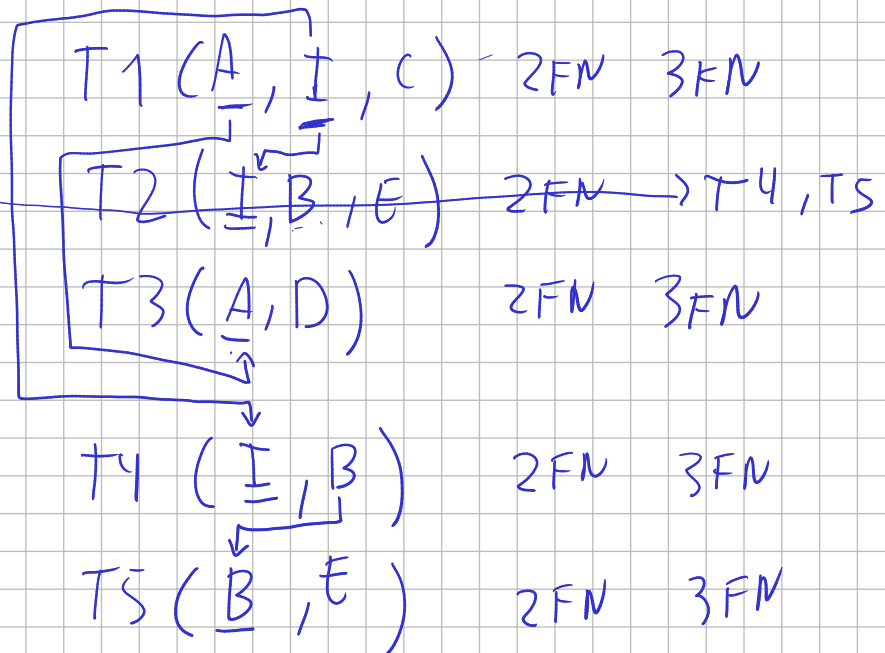 T1 (A, I, C) 2FN 3FN
T2 (I, B, E) 2FN → T4, T5
T3 (A, D) 2FN 3FN
T4 (I, B) 2FN 3FN
T5 (B, E) 2FN 3FN